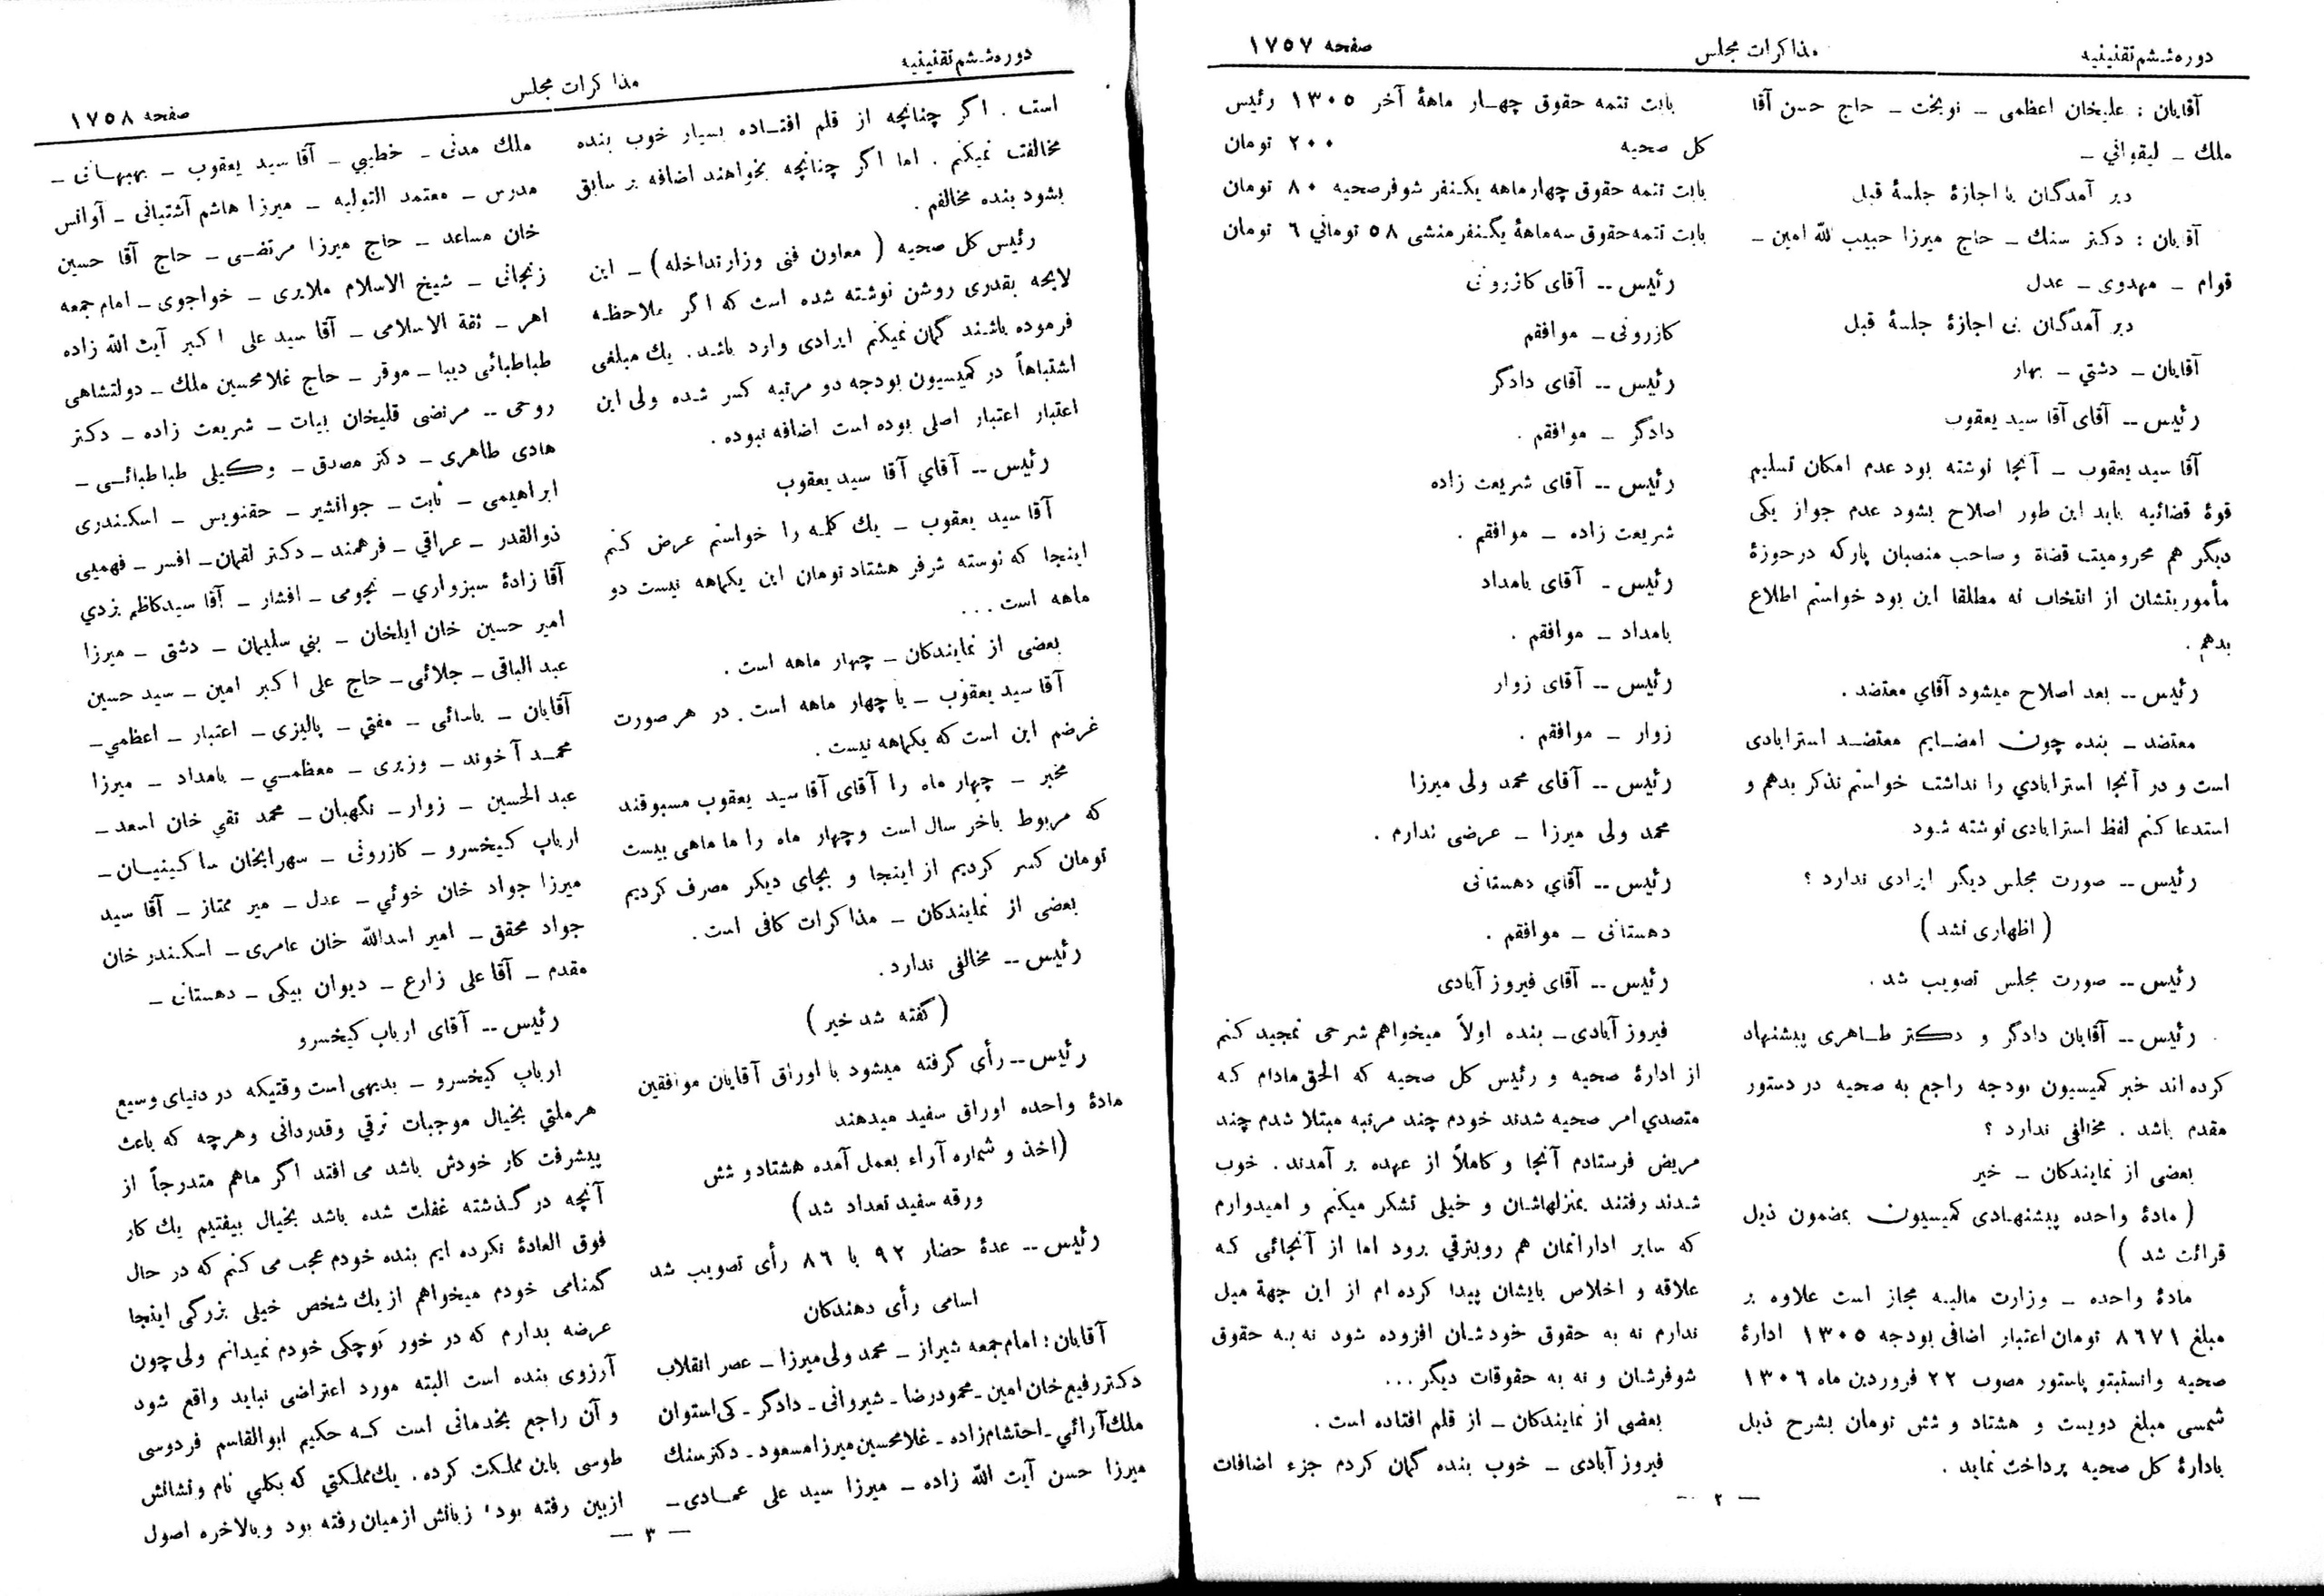 دوره ششم تقنینیه
مذاکرات مجلس
صفحه ۱۷۵۷
آقایان : علیخان اعظمی ـ نوبخت ـ حاج حسن آقا
ملك ـ لیقوانی ـ
دیر آمدگان با اجازۀ جلسۀ قبل
آقایان : دکتر سنك ـ حاج میرزا حبیب الله امین ـ
قوام ـ مهدوی ـ عدل
دیر آمدگان بی اجازۀ جلسۀ قبل
آقایان ـ دشتی ـ بهار
رئیس ـ آقای آقا سید یعقوب
آقا سید یعقوب ـ آنجا نوشته بود عدم امکان تسلیم
قوۀ قضائیه باید این طور اصلاح بشود عدم جواز یکی
دیگر هم محرومیت قضاة و صاحب منصبان پارکه در حوزۀ
مأموریتشان از انتخاب نه مطلقا این بود خواستم اطلاع
بدهم .
رئیس ـ بعد اصلاح میشود آقای معتضد .
معتضد ـ بنده چون امضایم معتضد استرابادی
است و در آنجا استرابادی را نداشت خواستم تذکر بدهم و
استدعا کنم لفظ استرابادی نوشته شود
رئیس ـ صورت مجلس دیگر ایرادی ندارد ؟
( اظهاری نشد )
رئیس ـ صورت مجلس تصویب شد .
رئیس ـ آقایان دادگر و دکتر طاهری پیشنهاد
کرده اند خبر کمیسیون بودجه راجع به صحیه در دستور
مقدم باشد . مخالفی ندارد ؟
بعضی از نمایندگان ـ خیر
( مادۀ واحده پیشنهادی کمیسیون بمضمون ذیل
قرائت شد )
مادۀ واحده ـ وزارت مالیه مجاز است علاوه بر
مبلغ ۸۶۷۱ تومان اعتبار اضافی بودجه ۱۳۰۵ ادارۀ
صحیه وانستیتو پاستور مصوب ۲۲ فروردین ماه ۱۳۰۶
شمسی مبلغ دویست و هشتاد و شش تومان بشرح ذیل
بادارۀ کل صحیه پرداخت نماید .
بابت تتمه حقوق چهار ماهۀ آخر ۱۳۰۵ رئیس
کل صحیه ۲۰۰ تومان
بابت تتمه حقوق چهار ماهه یکنفر شوفر صحیه ۸۰ تومان
بابت تتمه حقوق سه ماهۀ یکنفر منشی ۵۸ تومانی ۶ تومان
رئیس ـ آقای کازرونی
کازرونی ـ موافقم
رئیس ـ آقای دادگر
دادگر ـ موافقم .
رئیس ـ آقای شریعت زاده
شریعت زاده ـ موافقم .
رئیس ـ آقای بامداد
بامداد ـ موافقم .
رئیس ـ آقای زوار
زوار ـ موافقم .
رئیس ـ آقای محمد ولی میرزا
محمد ولی میرزا ـ عرضی ندارم .
رئیس ـ آقای دهستانی
دهستانی ـ موافقم .
رئیس ـ آقای فیروز آبادی
فیروز آبادی ـ بنده اولاً میخواهم شرحی تمجید کنم
از ادارۀ صحیه و رئیس کل صحیه که الحق مادام که
متصدی امر صحیه شدند خودم چند مرتبه مبتلا شدم چند
مریض فرستادم آنجا و کاملاً از عهده بر آمدند . خوب
شدند رفتند بمنزلهاشان و خیلی تشکر میکنم و امیدوارم
که سایر اداراتمان هم روبترقی برود اما از آنجائی که
علاقه و اخلاص بایشان پیدا کرده ام از این جهة میل
ندارم نه به حقوق خودشان افزوده شود نه به حقوق
شوفرشان و نه به حقوقات دیگر ...
بعضی از نمایندگان ـ از قلم افتاده است .
فیروز آبادی ـ خوب بنده گمان کردم جزء اضافات
ـ ۲ ـ
دوره ششم تقنینیه
مذاکرات مجلس
صفحه ۱۷۵۸
است . اگر چنانچه از قلم افتاده بسیار خوب بنده
مخالفت نمیکنم . اما اگر چنانچه بخواهند اضافه بر سابق
بشود بنده مخالفم .
رئیس کل صحیه ( معاون فنی وزارتداخله ) ـ این
لایحه بقدری روشن نوشته شده است که اگر ملاحظه
فرموده باشند گمان نمیکنم ایرادی وارد باشد . یك مبلغی
اشتباهاً در کمیسیون بودجه دو مرتبه کسر شده ولی این
اعتبار اعتبار اصلی بوده است اضافه نبوده .
رئیس ـ آقای آقا سید یعقوب
آقا سید یعقوب ـ یك کلمه را خواستم عرض کنم
اینجا که نوسته شرفر هشتاد تومان این یکماهه نیست دو
ماهه است ...
بعضی از نمایندگان ـ چهار ماهه است .
آقا سید یعقوب ـ یا چهار ماهه است . در هر صورت
غرضم این است که یکماهه نیست .
مخبر ـ چهار ماه را آقای آقا سید یعقوب مسبوقند
که مربوط بآخر سال است و چهار ماه را ما ماهی بیست
تومان کسر کردیم از اینجا و بجای دیگر مصرف کردیم
بعضی از نمایندگان ـ مذاکرات کافی است .
رئیس ـ مخالفی ندارد .
( گفته شد خیر )
رئیس ـ رأی گرفته میشود با اوراق آقایان موافقین
مادۀ واحده اوراق سفید میدهند
( اخذ و شماره آراء بعمل آمده هشتاد و شش
ورقه سفید تعداد شد )
رئیس ـ عدۀ حضار ۹۲ با ۸۶ رأی تصویب شد
اسامی رأی دهندگان
آقایان : امام جمعه شیراز ـ محمد ولی میرزا ـ عصر انقلاب
دکتر رفیع خان امین ـ محمود رضا ـ شیروانی ـ دادگر ـ کی استوان
ملك آرائی ـ احتشام زاده ـ غلامحسین میرزا مسعود ـ دکتر سنك
میرزا حسن آیت الله زاده ـ میرزا سید علی عمادی ـ
ملك مدنی ـ خطیبی ـ آقا سید یعقوب ـ بهبهانی ـ
مدرس ـ معتمد التولیه ـ میرزا هاشم آشتیانی ـ آوانس
خان مساعد ـ حاج میرزا مرتضی ـ حاج آقا حسین
زنجانی ـ شیخ الاسلام ملایری ـ خواجوی ـ امام جمعه
اهر ـ ثقة الاسلامی ـ آقا سید علی اکبر آیت الله زاده
طباطبائی دیبا ـ موقر ـ حاج غلامحسین ملك ـ دولتشاهی
روحی ـ مرتضی قلیخان بیات ـ شریعت زاده ـ دکتر
هادی طاهری ـ دکتر مصدق ـ وکیلی طباطبائی ـ
ابراهیمی ـ ثابت ـ جوانشیر ـ حقنویس ـ اسکندری
ذوالقدر ـ عراقی ـ فرهمند ـ دکتر لقمان ـ افسر ـ فهیمی
آقا زادۀ سبزواری ـ نجومی ـ افشار ـ آقا سید کاظم یزدی
امیر حسین خان ایلخان ـ بنی سلیمان ـ دشتی ـ میرزا
عبد الباقی ـ جلائی ـ حاج علی اکبر امین ـ سید حسین
آقایان ـ یاسائی ـ مفتی ـ پالیزی ـ اعتبار ـ اعظمی ـ
محمد آخوند ـ وزیری ـ معظمی ـ بامداد ـ میرزا
عبد الحسین ـ زوار ـ نگهبان ـ محمد تقی خان اسعد ـ
ارباب کیخسرو ـ کازرونی ـ سهرابخان ساکینیان ـ
میرزا جواد خان خوئی ـ عدل ـ میر ممتاز ـ آقا سید
جواد محقق ـ امیر اسدالله خان عامری ـ اسکندر خان
مقدم ـ آقا علی زارع ـ دیوان بیکی ـ دهستانی ـ
رئیس ـ آقای ارباب کیخسرو
ارباب کیخسرو ـ بدیهی است وقتیکه در دنیای وسیع
هر ملتی بخیال موجبات ترقی و قدردانی و هرچه که باعث
پیشرفت کار خودش باشد می افتد اگر ماهم متدرجاً از
آنچه در گذشته غفلت شده باشد بخیال بیفتیم یك کار
فوق العادۀ نکرده ایم بنده خودم عجب می کنم که در حال
گمنامی خودم میخواهم از یك شخص خیلی بزرگی اینجا
عرضه بدارم که در خور کوچکی خودم نمیدانم ولی چون
آرزوی بنده است البته مورد اعتراضی نباید واقع شود
و آن راجع بخدماتی است که حکیم ابوالقاسم فردوسی
طوسی باین مملکت کرده . یك مملکتی که بکلی نام و نشانش
ازبین رفته بود ، زبانش از میان رفته بود و بالاخره اصول
ـ ۳ ـ